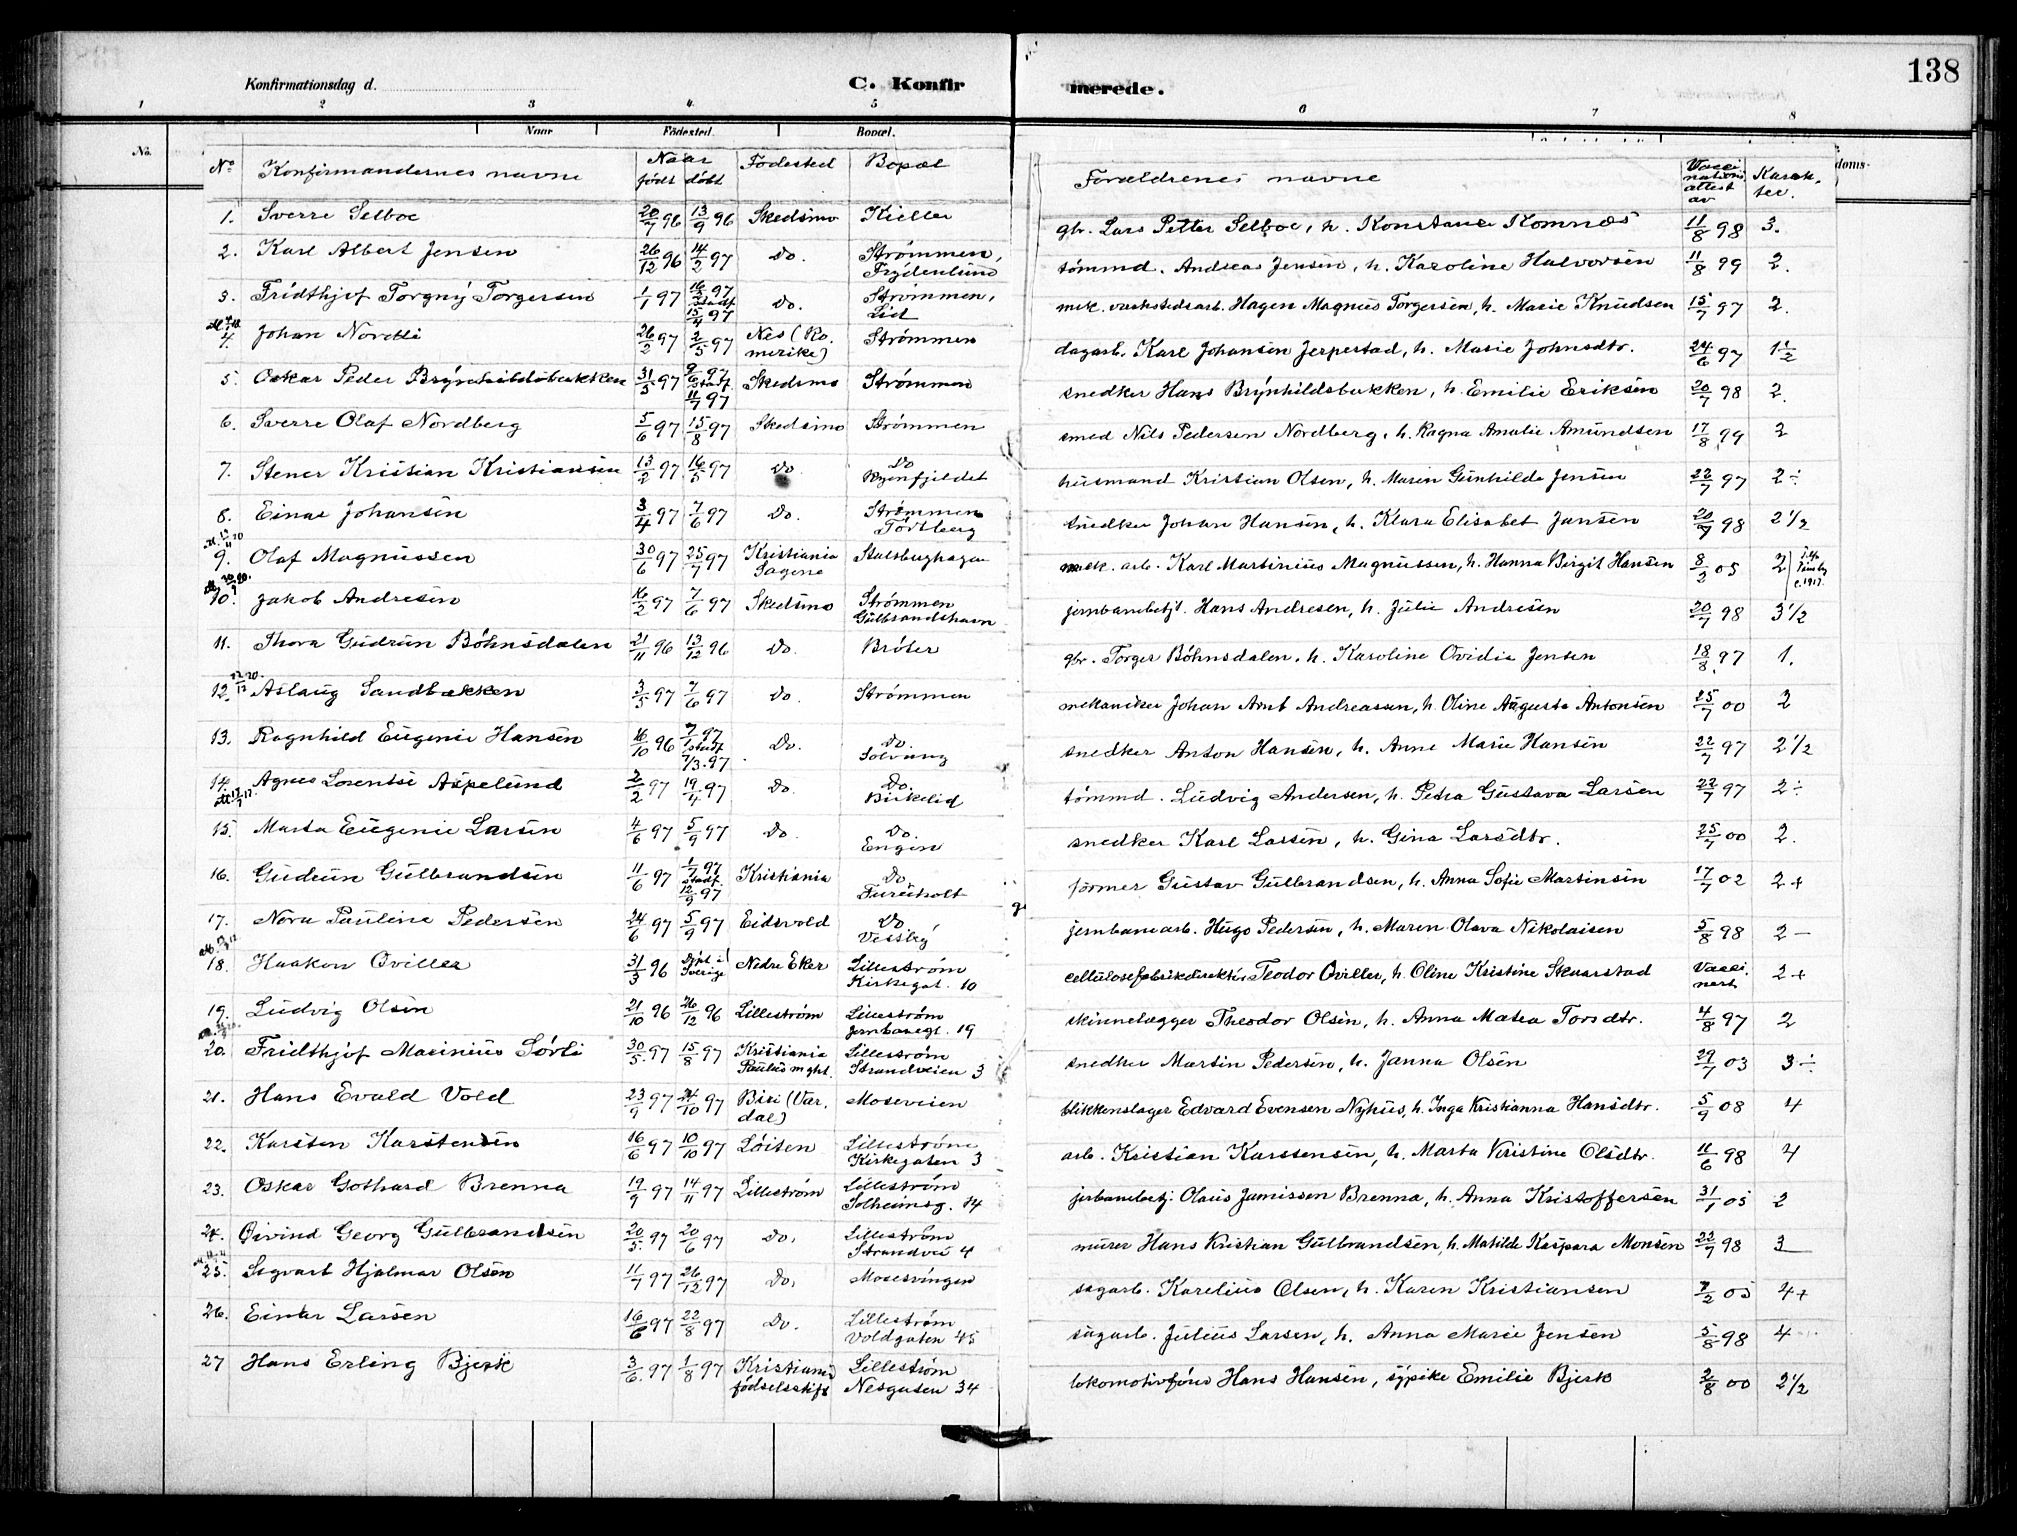 138
Konfirmationsdag d.
C. Konfirmerede.
1 2 3 4 5 6 7 8
No. Naar Födested. Bopæl. doms-
No Konfirmandernes navne Naar født døbt Fødested Bopæl Forældrenes navne Vaccinations attest av Karakter.
1. Sverre Selboe 20/7 96 13/9 96 Skedsmo Kieller gbr. Lars Petter Selboe, h. Konstance Komnæs 11/8 98 3.
2. Karl Albert Jensen 26/12 96 14/2 97 Do. Strømmen, Frydenlund tømmd. Andreas Jensen, h. Karoline Halvorsen 11/8 99 2.
3. Fridthjof Torgny Torgersen 1/1 97 16/2 97 stadf. 15/4 97 Do. Strømmen, Lid mek. verkstedsarb. Hagen Magnus Torgersen, h. Marie Knudsen 15/7 97 2.
4. Johan Nordli 26/2 97 2/5 97 Nes (Romerike) Strømmen dagarb. Karl Johansen Jerpestad, h. Marie Johnsdtr. 24/6 97 1½
5. Oskar Peder Brynhildsbakken 31/5 97 9/6 97 stadf. 11/7 97 Skedsmo Strømmen snedker Hans Brynhildsbakken, h. Emilie Eriksen 20/7 98 2.
6. Sverre Olaf Nordberg 5/6 97 15/8 97 Skedsmo Strømmen smed Nils Pedersen Nordberg, h. Ragna Amalie Amundsen 17/8 99 2
7. Stener Kristian Kristiansen 13/2 97 16/5 97 Do Do Ryenfjeldet husmand Kristian Olsen, h. Maren Gunhilde Jensen 22/7 97 2÷
8. Einar Johansen 3/4 97 7/6 97 Do. Strømmen Tortberg snedker Johan Hansen, h. Klara Elisabet Jansen 20/7 98 2½
9. Olaf Magnussen 30/6 97 25/7 97 Kristiania Sagene Stalsberghagen mek. arb. Karl Martinius Magnussen, h. Hanna Birgit Hansen 8/2 05 2
10. Jakob Andresen 16/2 97 7/6 97 Skedsmo Strømmen Gulbrandshavn jernbanebetj. Hans Andresen, h. Julie Andresen 20/7 98 3½
11. Thora Gudrun Bøhnsdalen 21/11 96 13/12 96 Do. Bråter gbr. Torger Bøhnsdalen, h. Karoline Ovidia Jensen 18/8 97 1.
12. Aslaug Sandbækken 3/5 97 7/6 97 Do. Strømmen mekaniker Johan Arnt Andreassen, h. Oline Augusta Antonsen 25/7 00 2
13. Ragnhild Eugenie Hansen 16/10 96 7/1 97 stadf. 7/3 97 Do. Do. Solvang snedker Anton Hansen, h. Anne Marie Hansen 22/7 97 2½
14. Agnes Lorentse Aspelund 2/2 97 19/4 97 Do. Do. Birkelid tømmd. Ludvig Andersen, h. Petra Gustava Larsen 22/7 97 2÷
15. Marta Eugenie Larsen 4/6 97 5/9 97 Do. Do. Engen snedker Karl Larsen, h. Gina Larsdtr. 25/7 00 2.
16. Gudrun Gulbrandsen 11/6 97 1/7 97 stadf. 12/9 97 Kristiania Do. Furuholt former Gustav Gulbrandsen, h. Anna Sofie Martinsen 17/7 02 2+
17. Nora Pauline Pedersen 24/6 97 5/9 97 Eidsvold Do. Vessby jernbanearb. Hugo Pedersen, h. Maren Olava Nikolaisen 5/8 98 2–
18. Haakon Oviller 31/3 96 døpt i Sverige Nedre Eker Lillestrøm Kirkegat. 10 cellulosefabrikdirektør Teodor Oviller, h. Oline Kristine Skarstad Vaccinert 2+
19. Ludvig Olsen 21/10 96 26/12 96 Lillestrøm Lillestrøm Jernbanegt. 19 skinnelægger Theodor Olsen, h. Anna Matea Torsdtr. 4/8 97 2
20. Fridthjof Marinius Sørli 30/5 97 15/8 97 Kristiania Paulus mght. Lillestrøm Strandveien 3 snedker Martin Pedersen, h. Janna Olsen 29/7 03 3÷
21. Hans Evald Vold 23/9 97 24/10 97 Biri (Vardal) Moseveien blikkenslager Edvard Evensen Nyhus, h. Inga Kristianna Hansdtr. 5/9 08 4
22. Karsten Karstensen 16/6 97 10/10 97 Løiten Lillestrøm Kirkegaten 3 arb. Kristian Karstensen, h. Marta Kristine Olsdtr. 11/6 98 4
23. Oskar Gothard Brenna 19/9 97 14/11 97 Lillestrøm Lillestrøm Solheimsg. 14 jerbanebetj. Olaus Jamissen Brenna, h. Anna Kristoffersen 31/1 05 2
24. Øivind Georg Gulbrandsen 20/5 97 20/6 97 Do. Lillestrøm Strandvei 4 murer Hans Kristian Gulbrandsen, h. Matilde Kaspara Monsen 22/7 98 3
25. Sigvart Hjalmar Olsen 11/7 97 26/12 97 Do. Mosesvingen sagarb. Karelius Olsen, h. Karen Kristiansen 7/2 05 4+
26. Einar Larsen 16/6 97 22/8 97 Do. Lillestrøm Voldgaten 45 sagarb. Julius Larsen, h. Anna Marie Jensen 5/8 98 4
27 Hans Erling Bjerk 3/6 97 1/8 97 Kristiania fødselsstift Lillestrøm Nesgaten 34 lokomotivfører Hans Hansen, s. pike Emilie Bjerk 2/8 00 2½